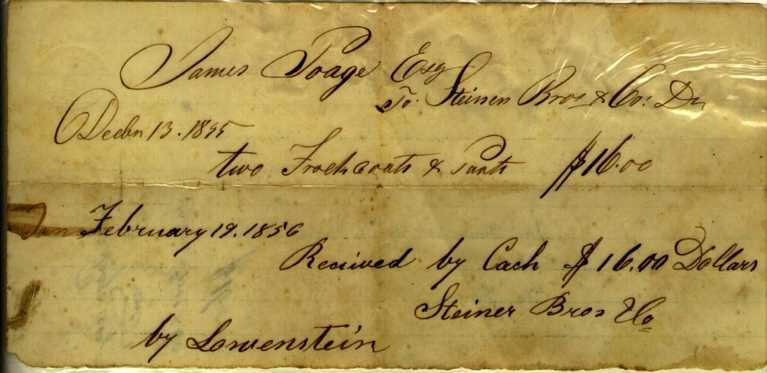 James Poage Esq
To Steinen Bros & Co: Dr
Decbr 13. 1855
two Frockcoats & Pants $16.00
February 19. 1856
Received by Cach $16.00 Dollars
Steiner Bros & Co
by Lowenstein